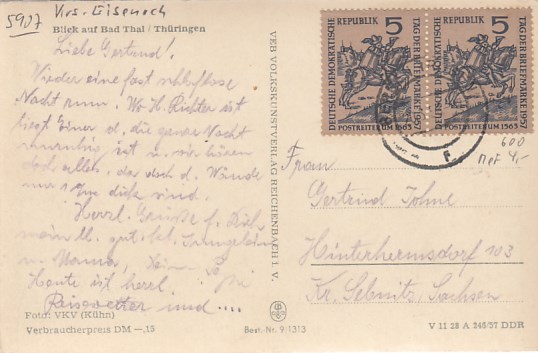 5907 Krs. Eisenach
Blick auf Bad Thal / Thüringen
Liebe Gertrud!
Wieder eine fast schlaflose
Nacht rum. Wo H. Richter ist
liegt einer d. die ganze Nacht
unruhig ist u. wir hören
doch alles, da doch d. Wände
nur dick sind.
Herzl. Grüße f. Dich
mein ll. gut.
u. Mama,
Heute ist herrl.
Reisewetter und ....
Foto: VKV (Kühn)
Verbraucherpreis DM —,15
Best.-Nr. 9/1313
VEB VOLKSKUNSTVERLAG REICHENBACH I. V.
DEUTSCHE DEMOKRATISCHE
REPUBLIK 5
TAG DER BRIEFMARKE 1957
POSTREITER UM 1563
DEUTSCHE DEMOKRATISCHE
REPUBLIK 5
TAG DER BRIEFMARKE 1957
POSTREITER UM 1563
600
MeF 4,-
Frau
Gertrud Johne
Hinterhermsdorf 103
Kr. Sebnitz, Sachsen
V 11 28 A 246/57 DDR